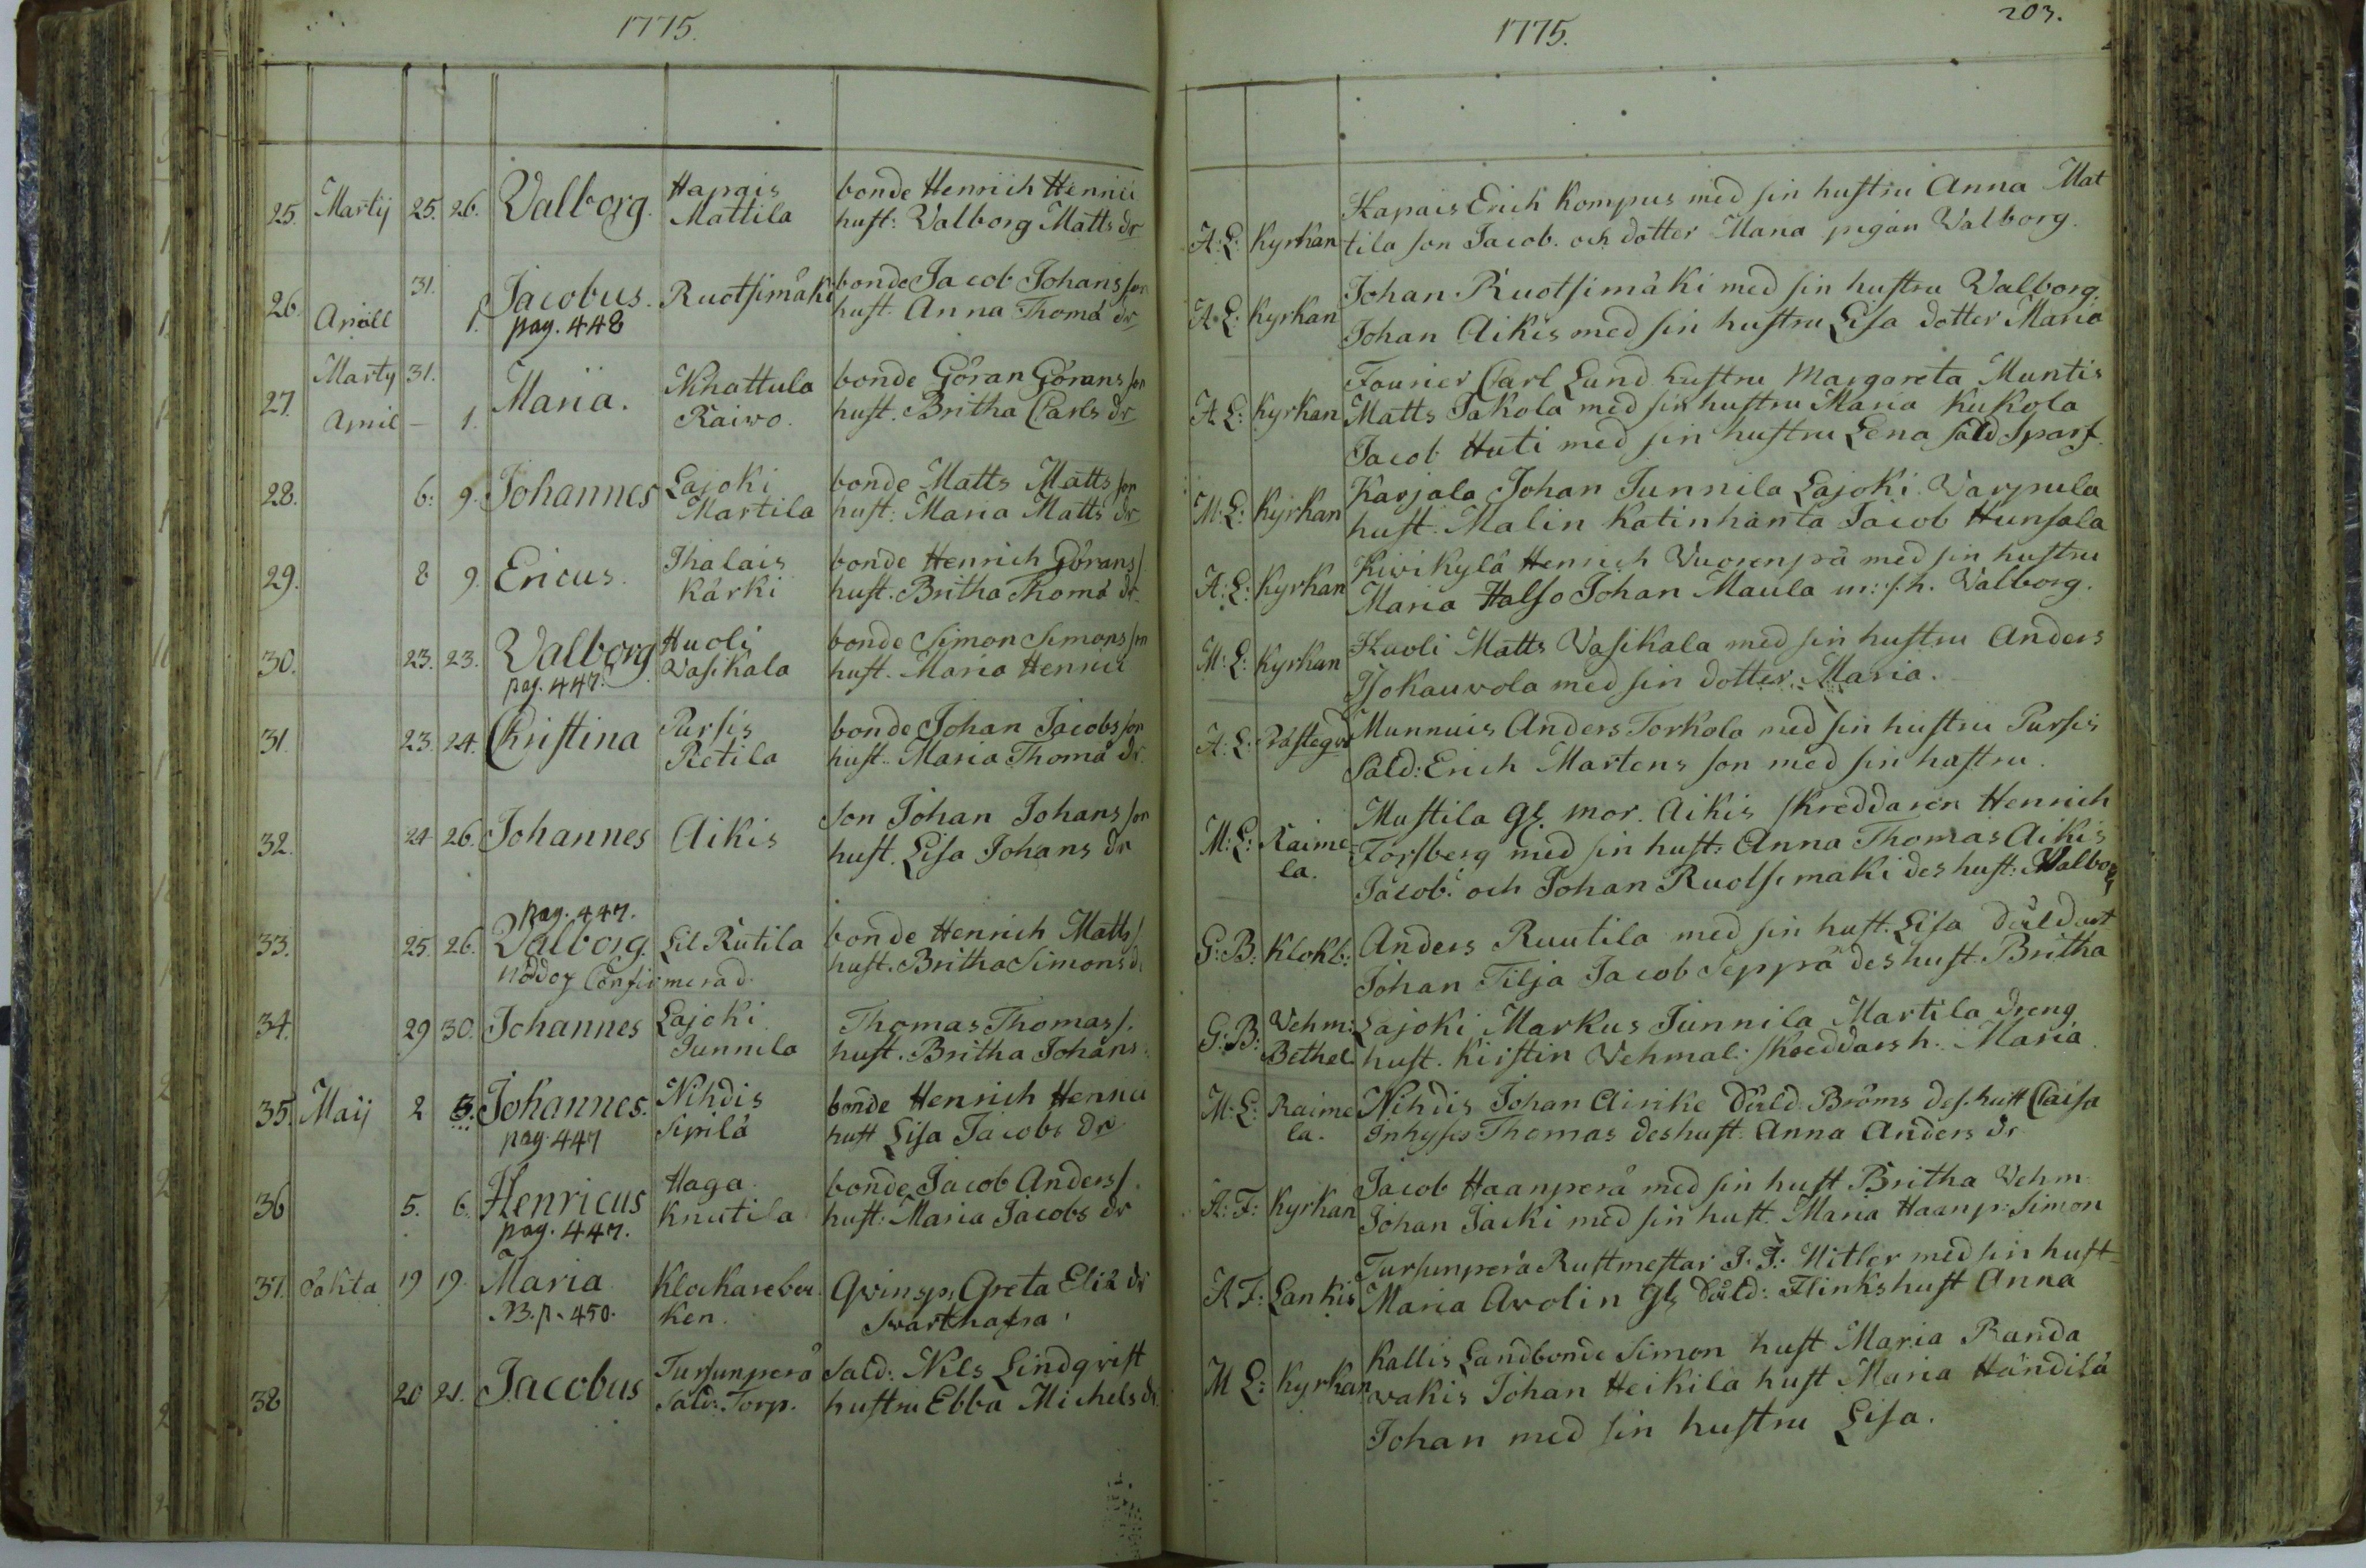 1775.
25. Martij 25. 26. Valborg. Hapais bonde Henrich Henrici
Mattila hust: Valborg Matts dr
26. 31. Jacobus. Ruotsimäki bonde Jacob Johans son
Aprill 1. pag. 448 hust. Anna Thomæ dr
27. Marty 31. Maria. Nihattula bonde Göran Görans son
April — 1. Raivo. hust. Britha Carls dr
28. 6: 9. Johannes Lajoki bonde Matts Matts son
Martila hust: Maria Matts dr
29. 8 9. Ericus. Ihalais bonde Henrich Görans s.
Kärki hust. Britha Thomæ dr
30. 23. 23. Valborg Huoli bonde Simon Simons son
pag. 447. Vasikala hust. Maria Henrici
31. 23. 24. Christina Pursis bonde Johan Jacobs son
Retila hust. Maria Thomæ dr.
32. 24 26. Johannes Aikis son Johan Johans son
hust. Lisa Johans dr
pag. 447.
33. 25. 26. Valborg. Lil Rutila bonde Henrich Matts s.
nöddop Confirmerad. hust. Britha Simons d.
34. 29 30. Johannes Lajoki Thomas Thomas s.
Junnila hust. Britha Johans
35. Maij 2 3. Johannes. Nihdis bonde Henrich Henrici
pag. 447 Sipilä hust Lisa Jacobs dr
36 5. 6. Henricus Haga bonde Jacob Anders s.
pag. 447. Knutila hust: Maria Jacobs dr
37. oäkta 19 19. Maria Klockarebou Qvinsp. Greta Eliæ dr
NB. p. 450. ken.
38 20 21. Jacobus Tursunperä Sald: Nils Lindqvist
Sald: Torp. hustru Ebba Michels dr.
203.
1775.
Hapais Erich Kompus med sin hustru Anna Mat
A: L: Kyrkan tila son Jacob. och dotter Maria pigan Valborg.
Johan Ruotsimäki med sin hustru Valborg.
A: L: Kyrkan Johan Aikis med sin hustru Lisa dotter Maria
Fourier Carl Lund hustru Margareta Muntis
A: L: Kyrkan Matts Jakola med sin hustru Maria Kukola
Jacob Huti med sin hustru Lena sald Sparf.
Karjala Johan Junnila Lajoki Varpula
M: L: Kyrkan hust. Malin Katinhänta Jacob Hunsala
Kivikylä Henrich Vuorenpä med sin hustru
A: L: Kyrkan Maria Halso Johan Maula m: s. h. Valborg.
Huoli Matts Vasikala med sin hustru Anders
M: L: Kyrkan Isokauvola med sin dotter Maria.
Munnuis Anders Torkola med sin hustru Pursis
A: L: Prästegdn Sald: Erich Martens son med sin hustru.
Mustila gl. mor. Aikis skreddaren Henrich
M: L: Raime- Forsberg med sin hust: Anna Thomas Aikis
la. Jacob. och Johan Ruotsimäki des hust: Walborg
G: B: Klokb: Anders Ruutila med sin hust. Lisa
Johan Tilja Jacob Seppä des hust. Britha
Vehm: Lajoki Markus Junnila Martila dreng
G: B: Bethel hust. Kirstin Vehmal: skreddars h. Maria
M: L: Raime Nihdis Johan Airike Sald. Bröms des. hust Caisa
la. Inhyses Thomas des hust. Anna Anders dr
Jacob Haanperä med sin hust Britha Vehm.
A: F: Kyrkan Johan Jaeki med sin hust. Maria Haanp: Simon
Tursunperä Rustmestar J. J: Hitler med sin hust-
A F: Lankis Maria Avolin gl. Sald: Flinks hust Anna
Kallis Landbonde Simon hust Maria Randa
M L: Kyrkan vakis Johan Heikila hust Maria Händilä
Johan med sin hustru Lisa.